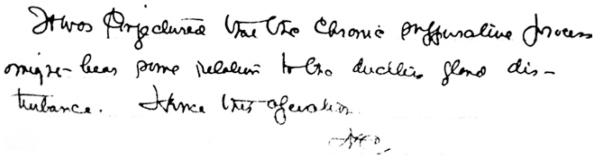 It was conjectured that the chronic suppurative process
might bear some relation to the ductless gland dis-
turbance. Hence this operation.